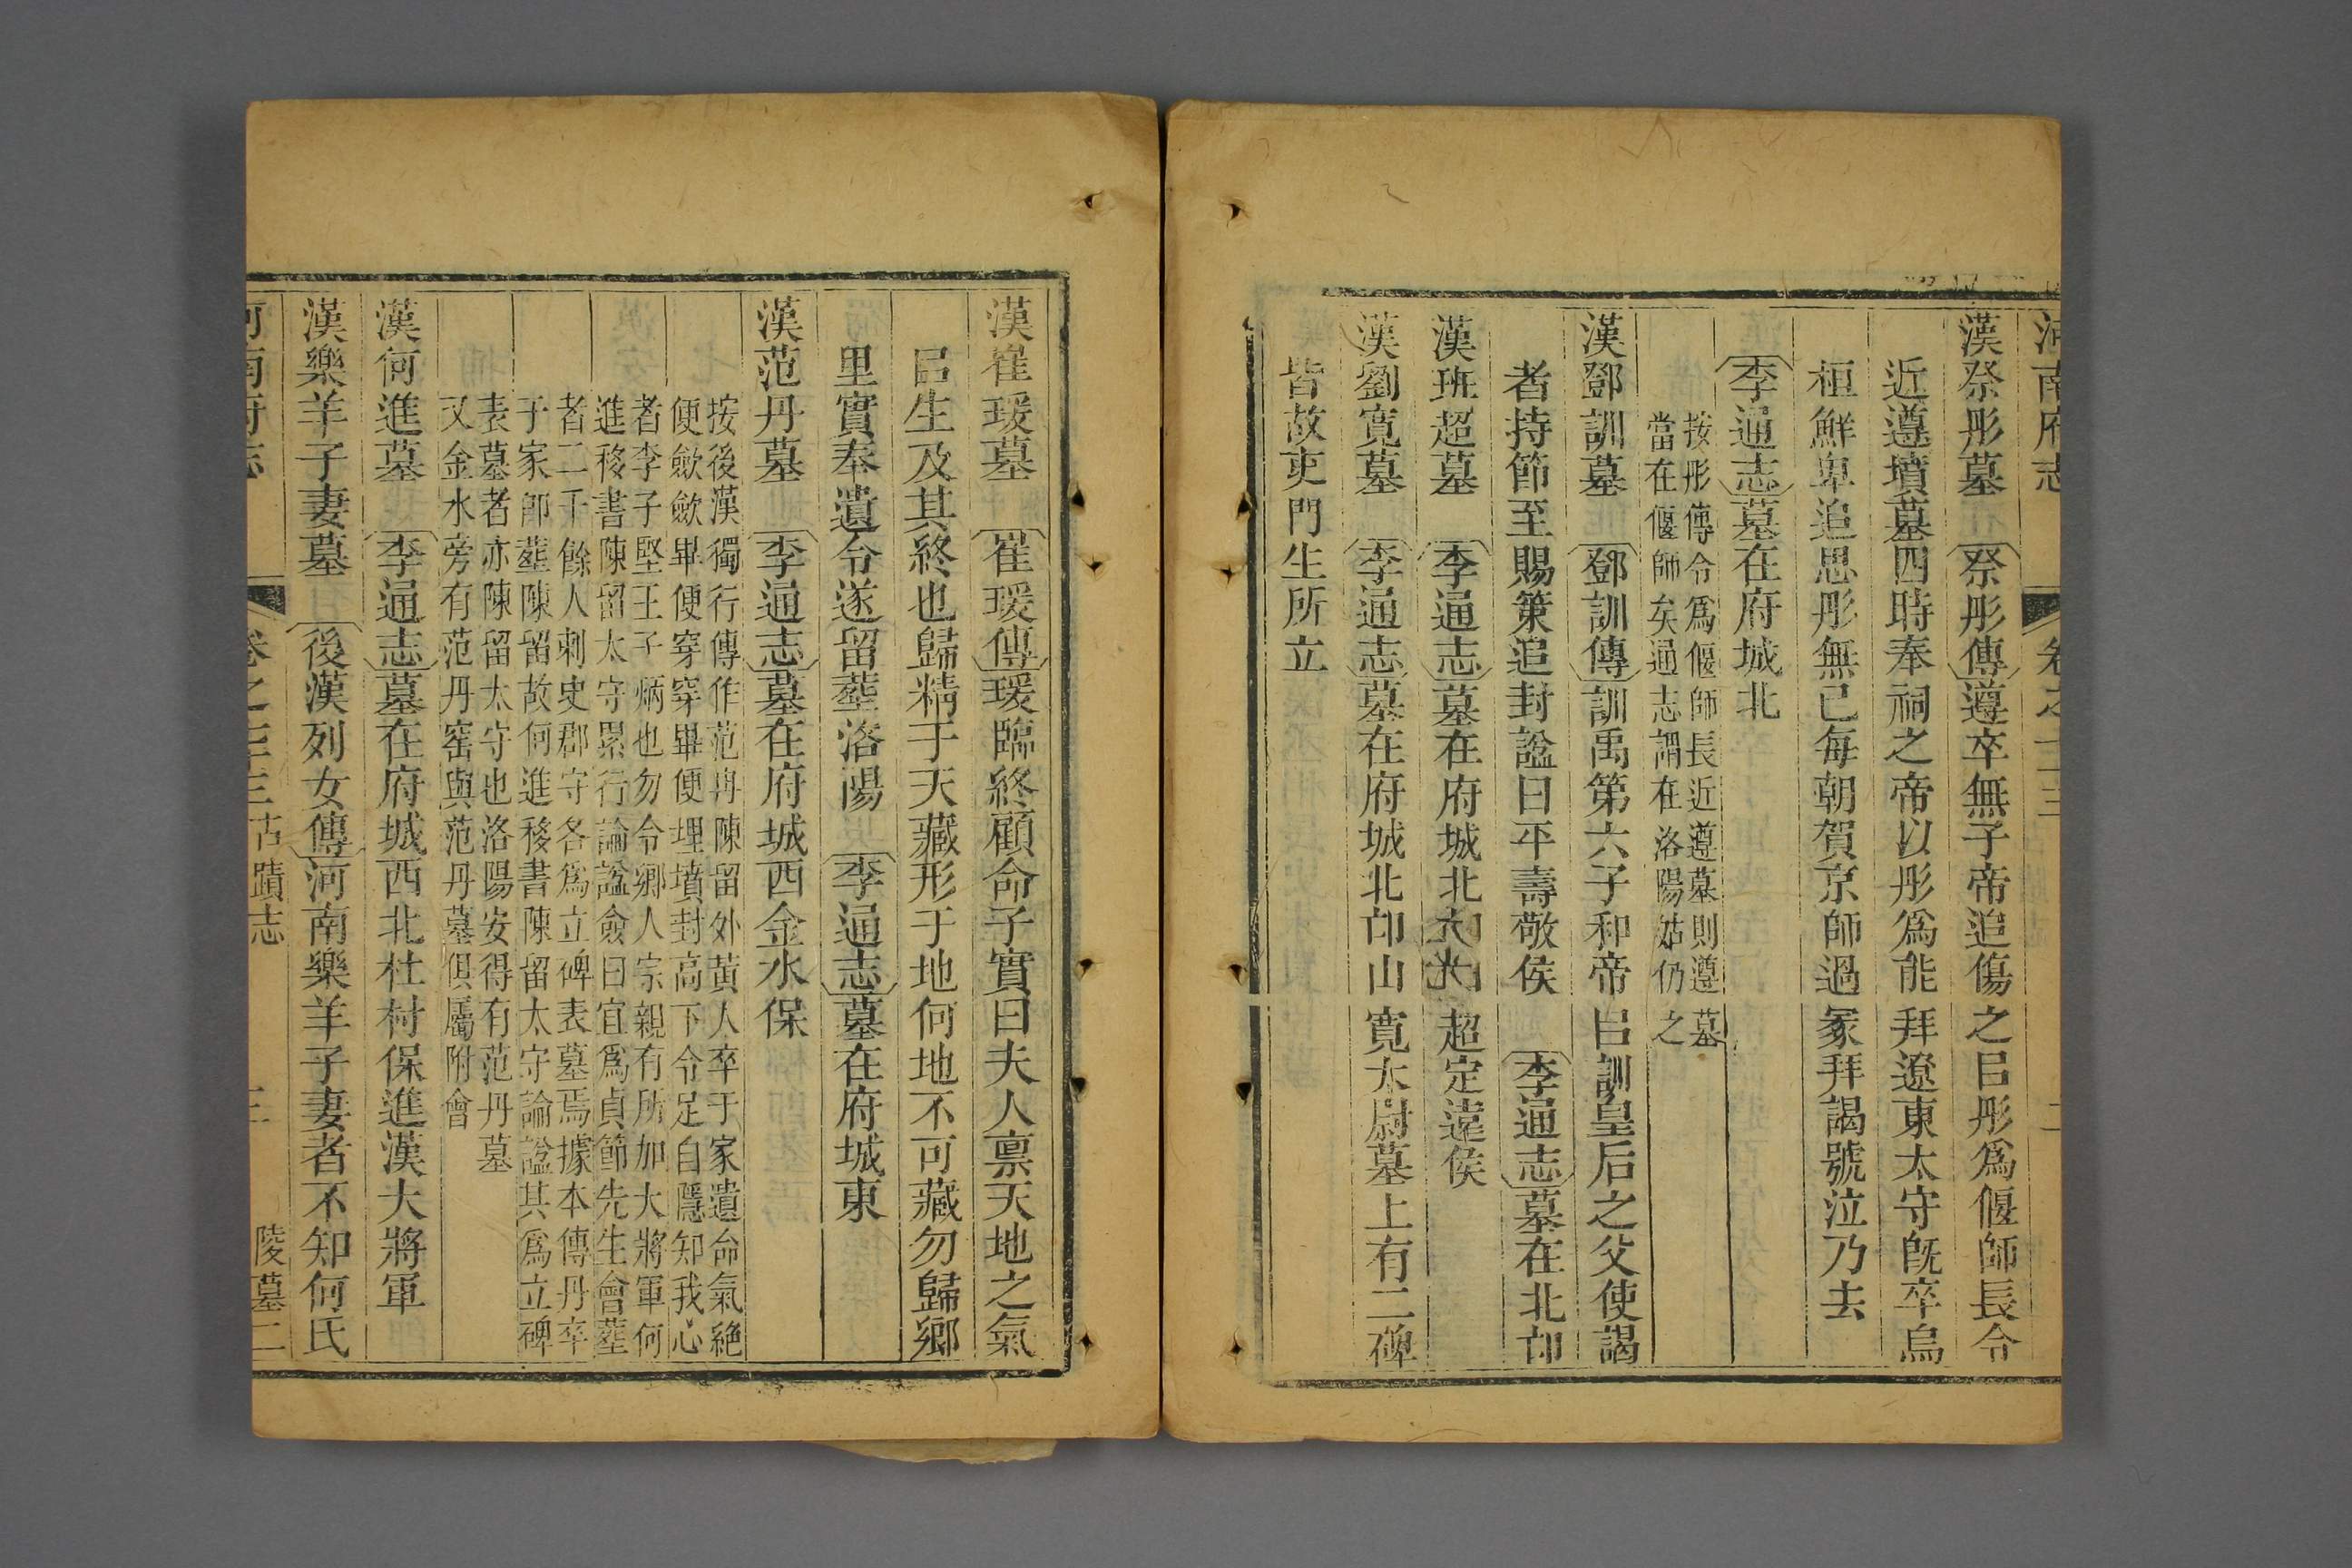 河南府志 卷之 二
漢祭肜墓 祭肜傳遵卒無子帝追傷之㠯肜爲偃師長令
近遵墳墓四時奉祠之帝以肜爲能拜遼東太守旣卒烏
桓鮮卑追思肜無已每朝賀京師過冢拜謁號泣乃去
李通志墓在府城北
按肜傳令爲偃師長近遵墓則遵墓
當在偃師矣通志謂在洛陽姑仍之
漢鄧訓墓 鄧訓傳訓禹第六子和帝㠯訓皇后之父使謁
者持節至賜策追封諡曰平壽敬侯 李通志墓在北邙
漢班超墓 李通志墓在府城北 超定遠侯
漢劉寛墓 李通志墓在府城北邙山寛太尉墓上有二碑
皆故吏門生所立
漢崔瑗墓 崔瑗傳瑗臨終顧命子實曰夫人禀天地之氣
㠯生及其終也歸精于天藏形于地何地不可藏勿歸鄉
里實奉遺令遂留塟洛陽 李通志墓在府城東
漢范丹墓 李通志墓在府城西金水保
按後漢獨行傳作范冉陳留外黃人卒于家遺命氣絶
便斂斂畢便穿穿畢便埋墳封高下令足自隱知我心
者李子堅王子炳也勿令鄉人宗親有所加大將軍何
進移書陳留太守累行論諡僉曰宜爲貞節先生會塟
者二千餘人刺史郡守各爲立碑表墓焉據本傳丹卒
于家卽塟陳留故何進移書陳留太守論諡其爲立碑
表墓者亦陳留太守也洛陽安得有范丹墓
又金水旁有范丹窑與范丹墓俱屬附會
漢何進墓 李通志墓在府城西北杜村保進漢大將軍
漢樂羊子妻墓 後漢列女傳河南樂羊子妻者不知何氏
河南府志 卷之 古蹟志 三 陵墓二